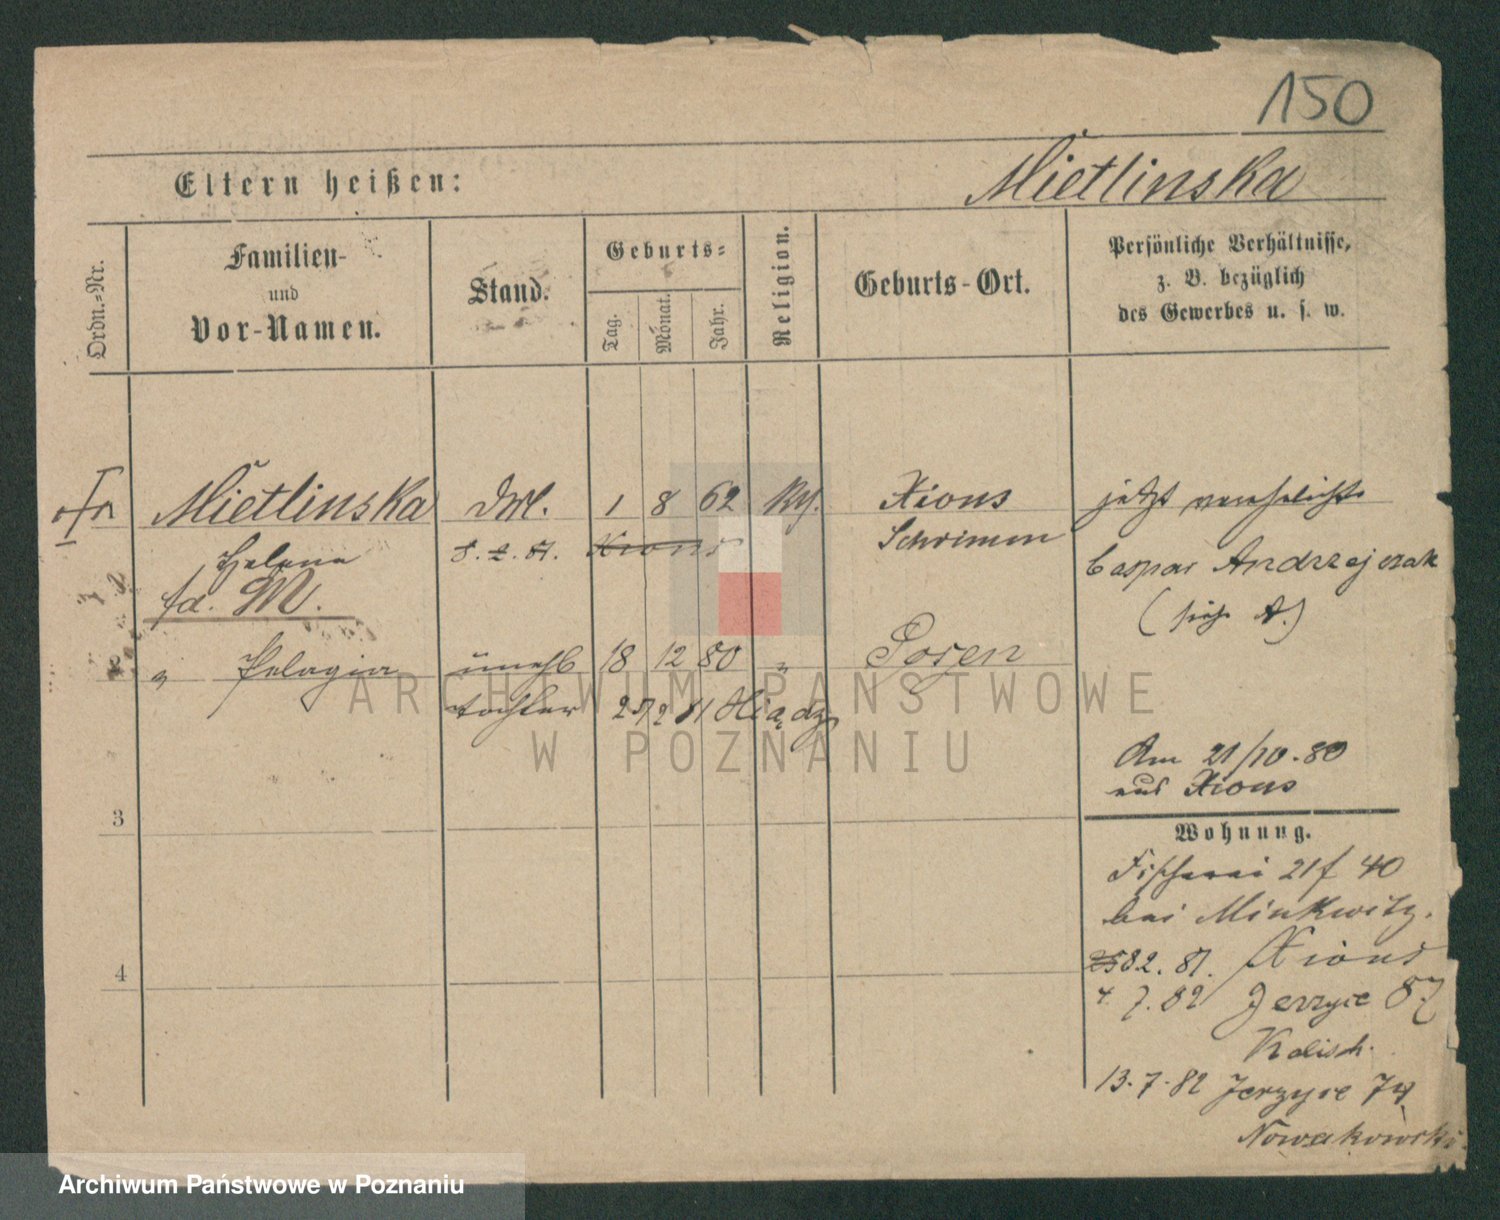 150
Eltern heißen:
Mietlinska
Ordn.-Nr.
Familien-
und
Vor-Namen.
Stand.
Geburts-
Tag.
Monat.
Jahr.
Religion.
Geburts-Ort.
Persönliche Verhältnisse,
z. B. bezüglich
des Gewerbes u. s. w.
Mietlinska 1 8 62 Xions jetzt verehelichte
Helena Xions Schrimm Caspar Andrzejczak
M. (siehe A.)
" Pelagia unehl 18 12 80 " Posen
tochter
ARCHIWUM PAŃSTWOWE
W POZNANIU
Am 21/10.80
aus Xions
3
Wohnung.
Fischerei 21f 40
bei Minkwitz.
4
2. 81. Xions
4. 7. 82 Jerzyce 87
Kalisch.
13.7.82 Jerzyce 74
Nowakowski
Archiwum Państwowe w Poznaniu